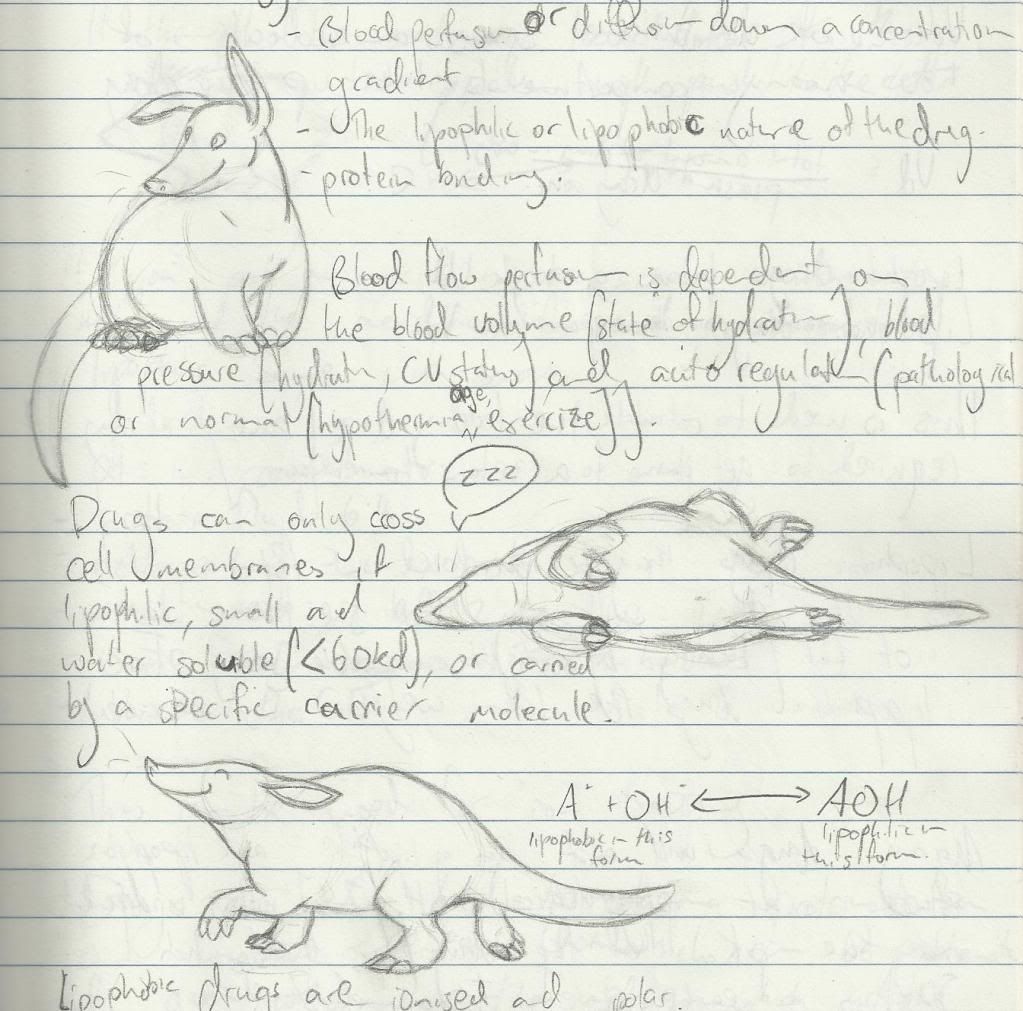 - Blood perfusion or diffusion down a concentration
gradient
- The lipophilic or lipophobic nature of the drug.
- protein binding.
Blood flow perfusion is dependent on
the blood volume (state of hydration), blood
pressure (hydration, CV status, age) and auto regulation (pathological
or normal [hypothermia, exercize]).
zzz
Drugs can only cross
cell membranes if
lipophilic, small and
water soluble (<60kd), or carried
by a specific carrier molecule.
A⁺ + OH⁻ ↔ AOH
lipophobic in this
form
lipophilic in
this form.
Lipophobic drugs are ionised and polar.